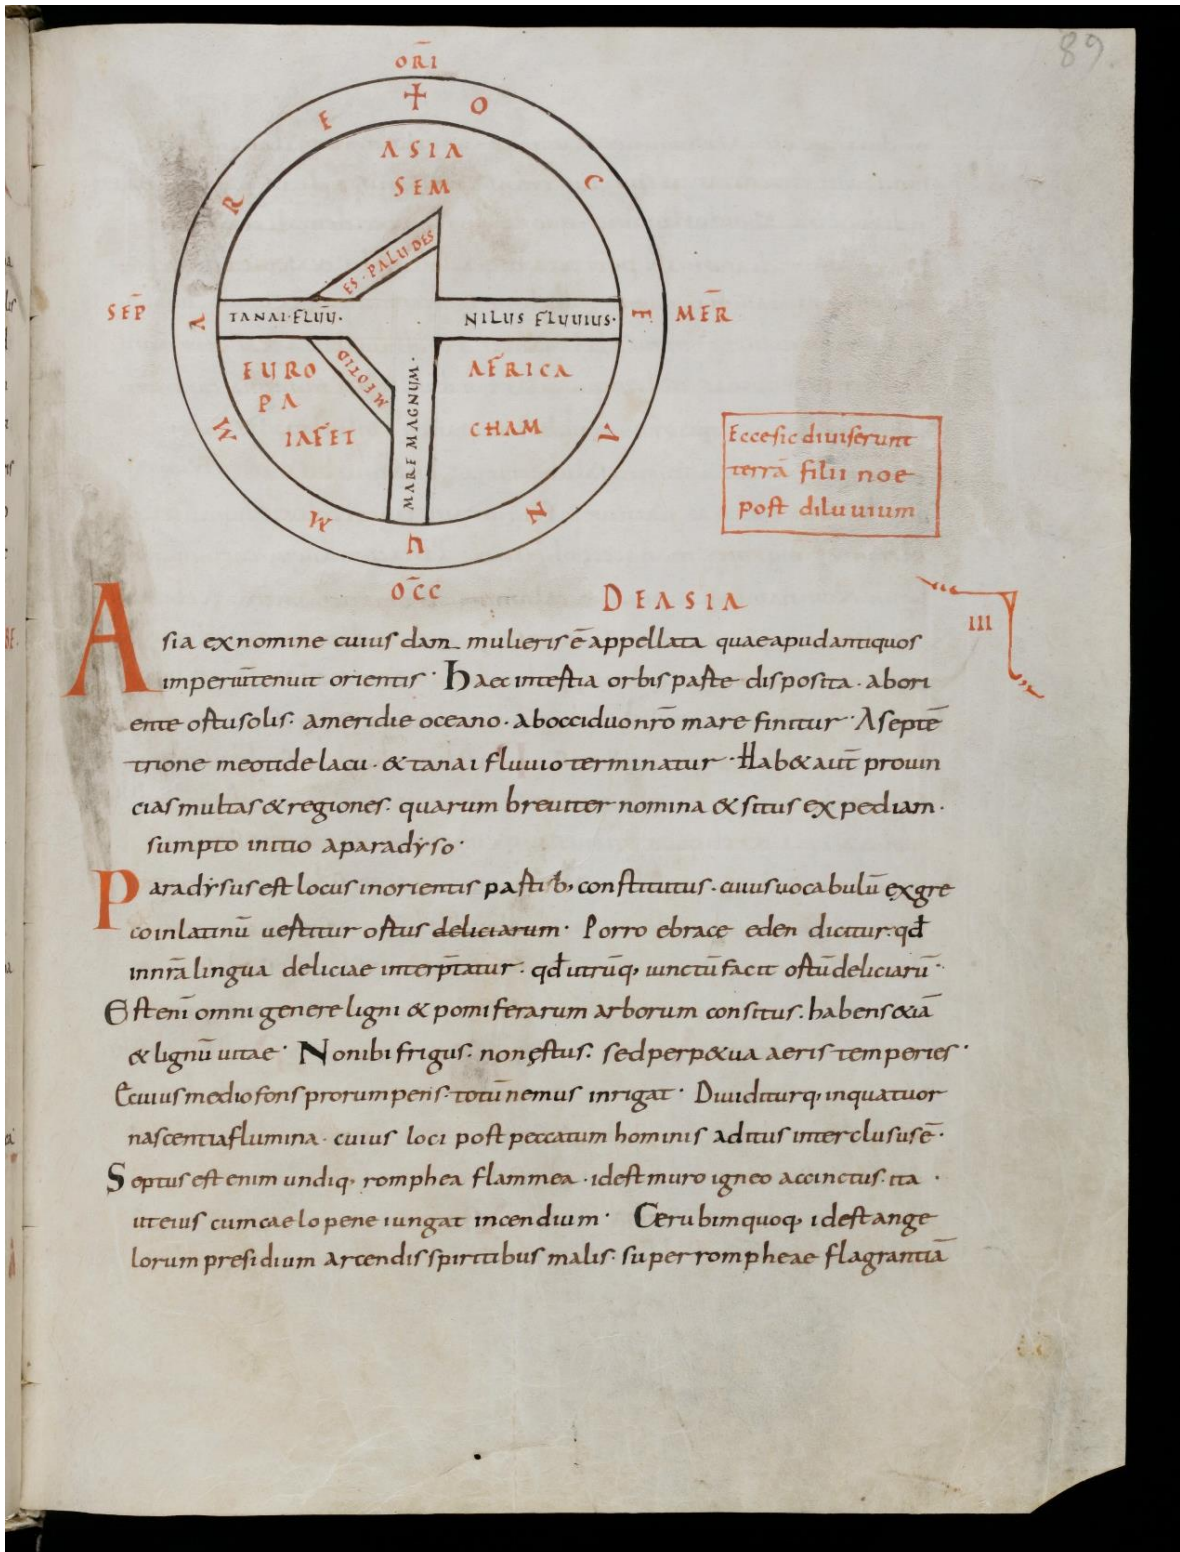 89.
ORĪ
MARE OCEANUM
ASIA
SEM
ES · PALUDES
SEP̄
TANAI · FLUŪ ·
NILUS FLUUIUS ·
MER̄
MEOTID
EURO
PA
IAFET
AFRICA
CHAM
MARE MAGNUM ·
Ecce sic diuiserunt
terrā filii noe
post diluuium
OC̄C
DE ASIA
III
Asia ex nomine cuiusdam mulieris ē appellata quae apud antiquos
imperiū tenuit orientis · Haec in tertia orbis parte disposita · ab ori
ente ortu solis · a meridie oceano · ab occiduo nr̄o mare finitur · A septē
trione meotide lacu · & tanai fluuio terminatur · Hab& aut̄ prouin
cias multas & regiones · quarum breuiter nomina & situs expediam ·
sumpto initio a paradẏso ·
Paradẏsus est locus in orientis partib; constitutus · cuius uocabulū ex gre
co in latinū uertitur ortus deliciarum · Porro ebrace eden dicitur · qđ
in nr̄a lingua deliciae interp̄tatur · qđ utrūq; iunctū facit ortū deliciarū ·
Est enī omni genere ligni & pomiferarum arborum consitus · habens &iā
& lignū uitae · Non ibi frigus · non ęstus · sed perp&ua aeris temperies ·
E cuius medio fons prorumpens · totū nemus inrigat · Diuiditurq; in quatuor
nascentia flumina · cuius loci post peccatum hominis aditus interclusus ē ·
Septus est enim undiq; romphea flammea · id est muro igneo accinctus · ita ·
ut eius cum caelo pene iungat incendium · Cerubim quoq; id est ange
lorum presidium arcendis spiritibus malis · super rompheae flagrantiā